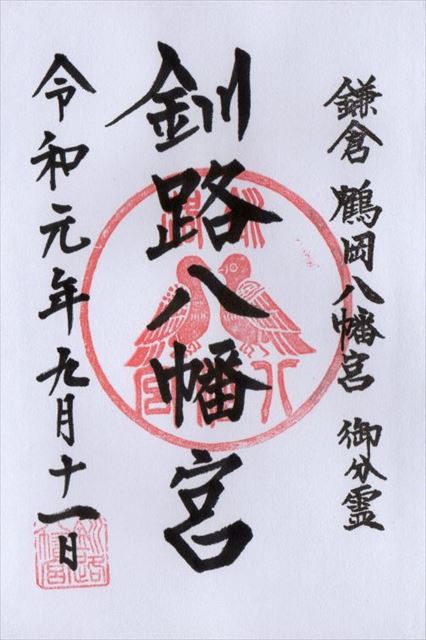 鎌倉 鶴岡八幡宮 御分霊
釧路八幡宮
令和元年九月十一日